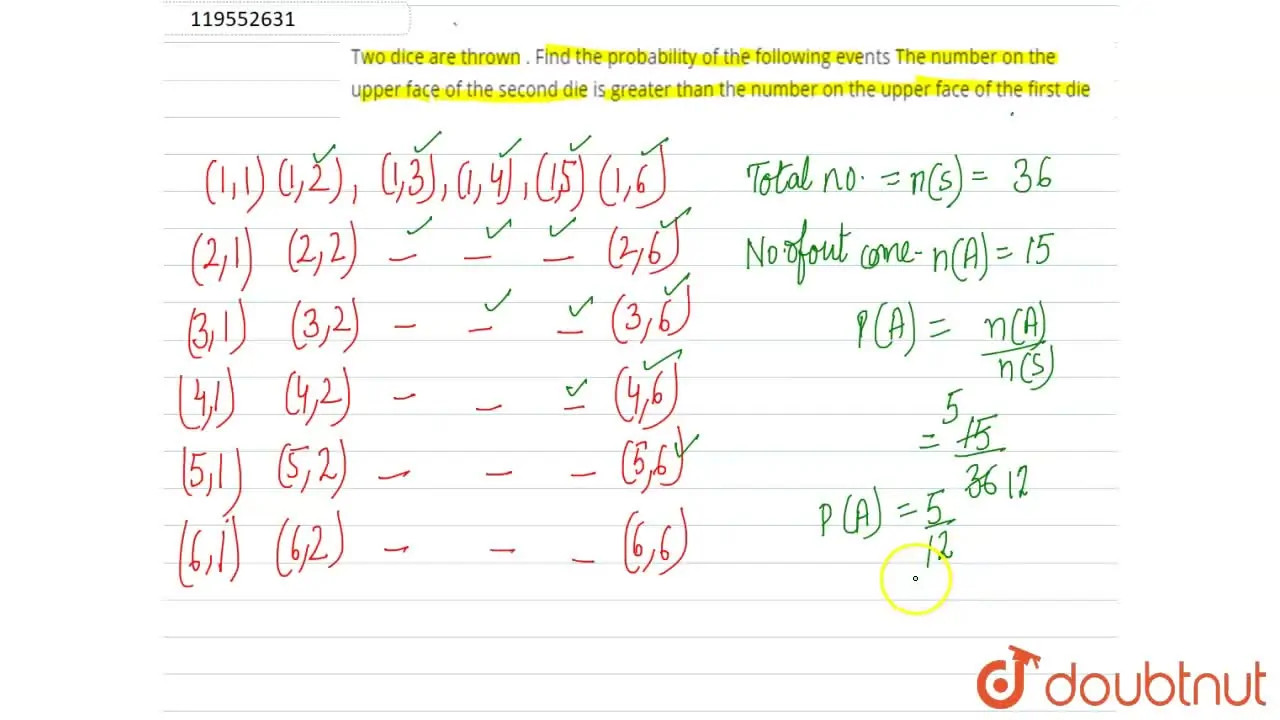 119552631
Two dice are thrown . Find the probability of the following events The number on the
upper face of the second die is greater than the number on the upper face of the first die
(1,1) (1,2), (1,3), (1,4), (1,5) (1,6)
(2,1) (2,2) – – – (2,6)
(3,1) (3,2) – – – (3,6)
(4,1) (4,2) – – – (4,6)
(5,1) (5,2) – – – (5,6)
(6,1) (6,2) – – – (6,6)
Total no. = n(s) = 36
No.of out come- n(A) = 15
P(A) = n(A)
n(s)
5
= 15
36 12
P(A) = 5
12
doubtnut